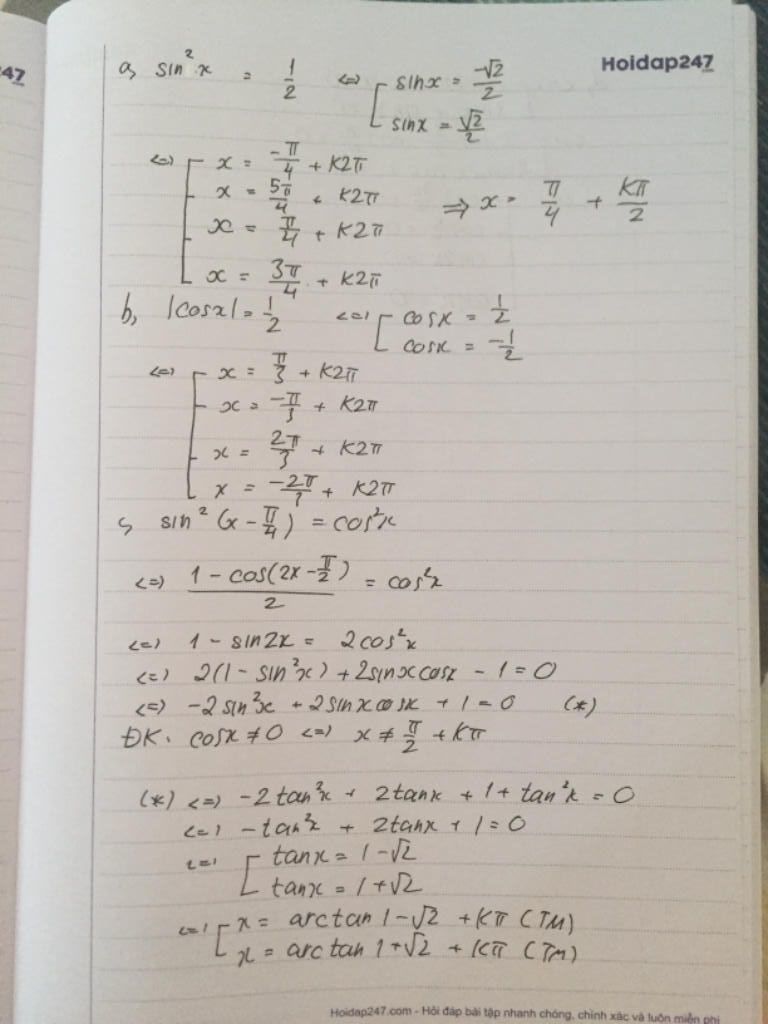 47
Hoidap247
a, sin²x = 1/2 <=> [ sinx = -√2/2
sinx = √2/2
<=> [ x = -π/4 + K2π
x = 5π/4 + K2π => x = π/4 + Kπ/2
x = π/4 + K2π
x = 3π/4 + K2π
b, |cosx| = 1/2 <=> [ cosx = 1/2
cosx = -1/2
<=> [ x = π/3 + K2π
x = -π/3 + K2π
x = 2π/3 + K2π
x = -2π/3 + K2π
c, sin²(x - π/4) = cos²x
<=> (1 - cos(2x - π/2))/2 = cos²x
<=> 1 - sin2x = 2cos²x
<=> 2(1 - sin²x) + 2sinxcosx - 1 = 0
<=> -2sin²x + 2sinxcosx + 1 = 0 (*)
ĐK. cosx ≠ 0 <=> x ≠ π/2 + Kπ
(*) <=> -2tan²x + 2tanx + 1 + tan²x = 0
<=> -tan²x + 2tanx + 1 = 0
<=> [ tanx = 1-√2
tanx = 1+√2
<=> [ x = arctan 1-√2 + Kπ (TM)
x = arctan 1+√2 + Kπ (TM)
Hoidap247.com - Hỏi đáp bài tập nhanh chóng, chính xác và luôn miễn phí